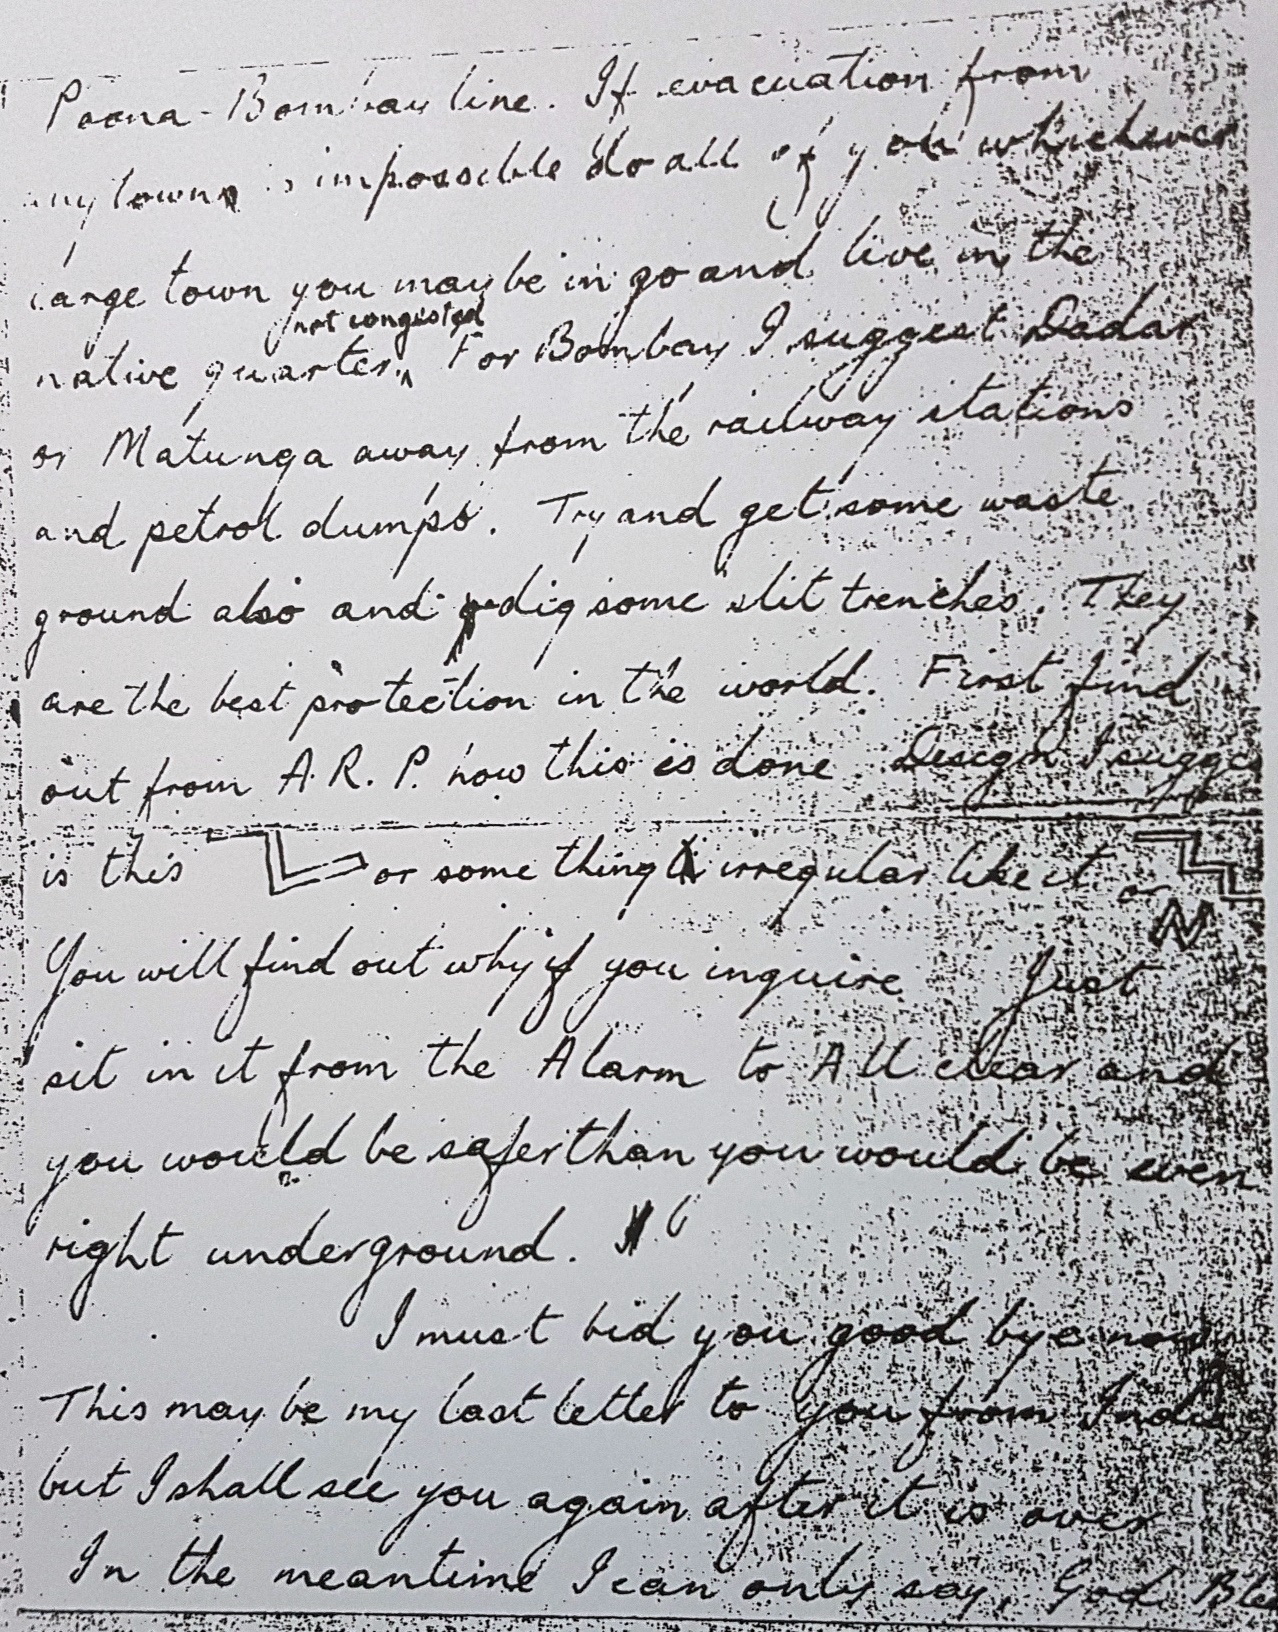 Poona-Bombay line. If evacuation from
any towns is impossible do all of you whichever
large town you may be in go and live in the
not congested
native quarter. For Bombay I suggest Dadar
or Matunga away from the railway stations
and petrol dumps. Try and get some waste
ground also and dig some slit trenches. They
are the best protection in the world. First find
out from A.R.P. how this is done Design I sugges
is this or some thing irregular like it or
You will find out why if you inquire. Just
sit in it from the Alarm to All clear and
you would be safer than you would be even
right underground.
I must bid you good bye now
This may be my last letter to you from India
but I shall see you again after it is over
In the meantime I can only say, God Bles